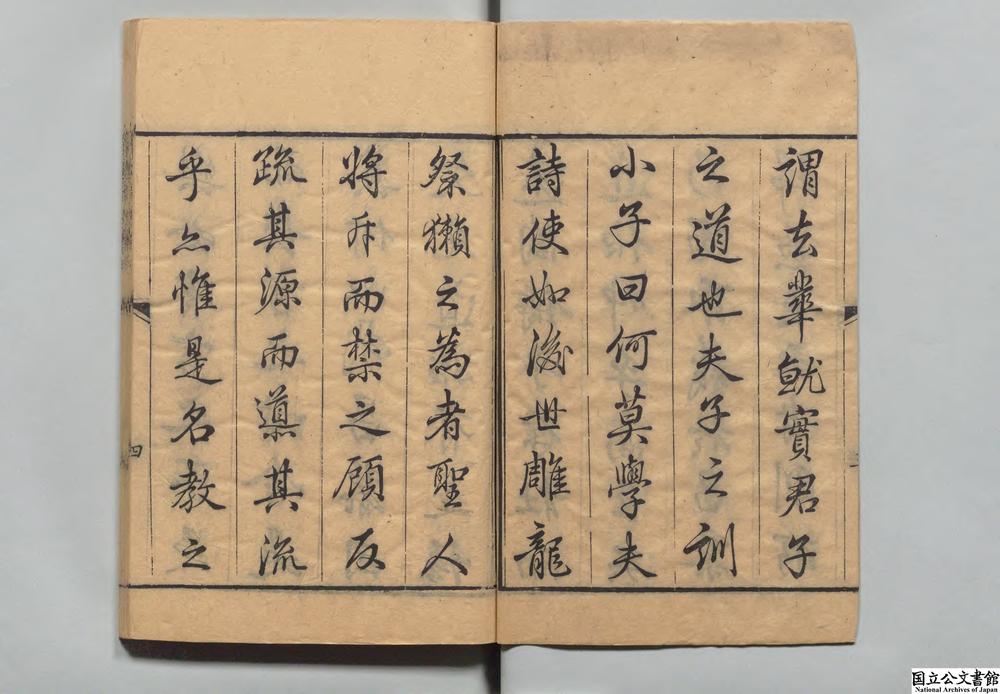 謂去華就實君子
之道也夫子之訓
小子曰何莫學夫
詩使如後世雕龍
祭獺之為者聖人
將斥而禁之顧反
疏其源而導其流
乎亦惟是名教之
四
国立公文書館
National Archives of Japan